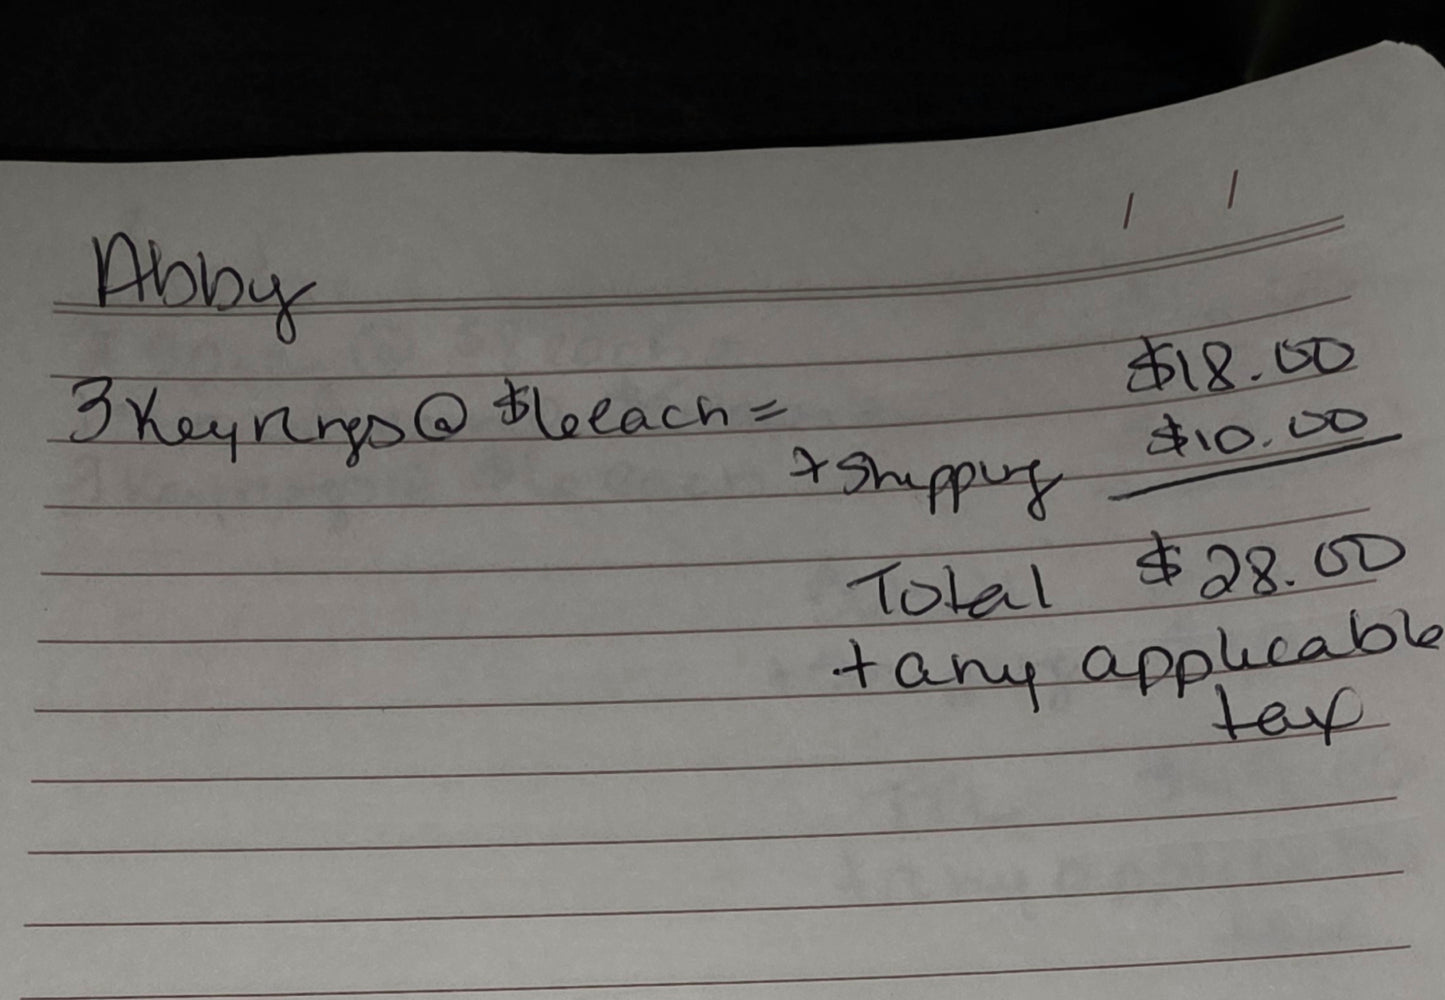 Abby
3 Keyrings @ $6 each = $18.00
+ Shipping $10.00
Total $28.00
+ any applicable
tax